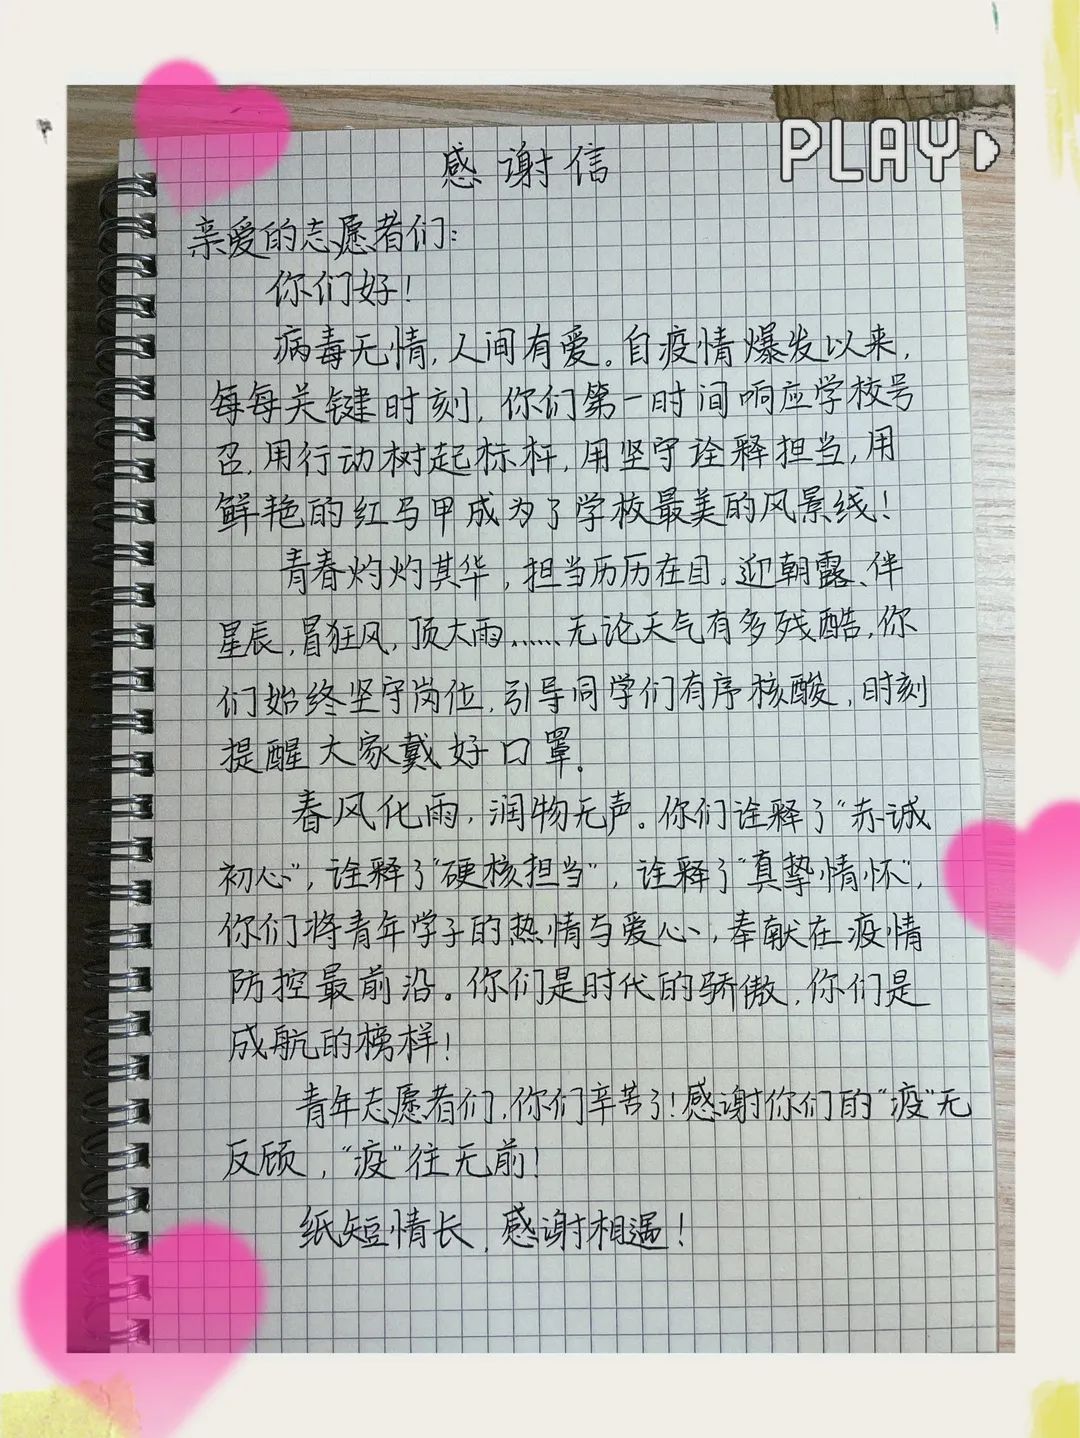 PLAY
感谢信
亲爱的志愿者们:
你们好!
病毒无情,人间有爱。自疫情爆发以来,
每每关键时刻,你们第一时间响应学校号
召,用行动树起标杆,用坚守诠释担当,用
鲜艳的红马甲成为了学校最美的风景线!
青春灼灼其华,担当历历在目。迎朝露、伴
星辰,冒狂风,顶大雨……无论天气有多残酷,你
们始终坚守岗位,引导同学们有序核酸,时刻
提醒大家戴好口罩。
春风化雨,润物无声。你们诠释了“赤诚
初心”,诠释了“硬核担当”,诠释了“真挚情怀”,
你们将青年学子的热情与爱心,奉献在疫情
防控最前沿。你们是时代的骄傲,你们是
成航的榜样!
青年志愿者们,你们辛苦了!感谢你们的“疫”无
反顾,“疫”往无前!
纸短情长,感谢相遇!